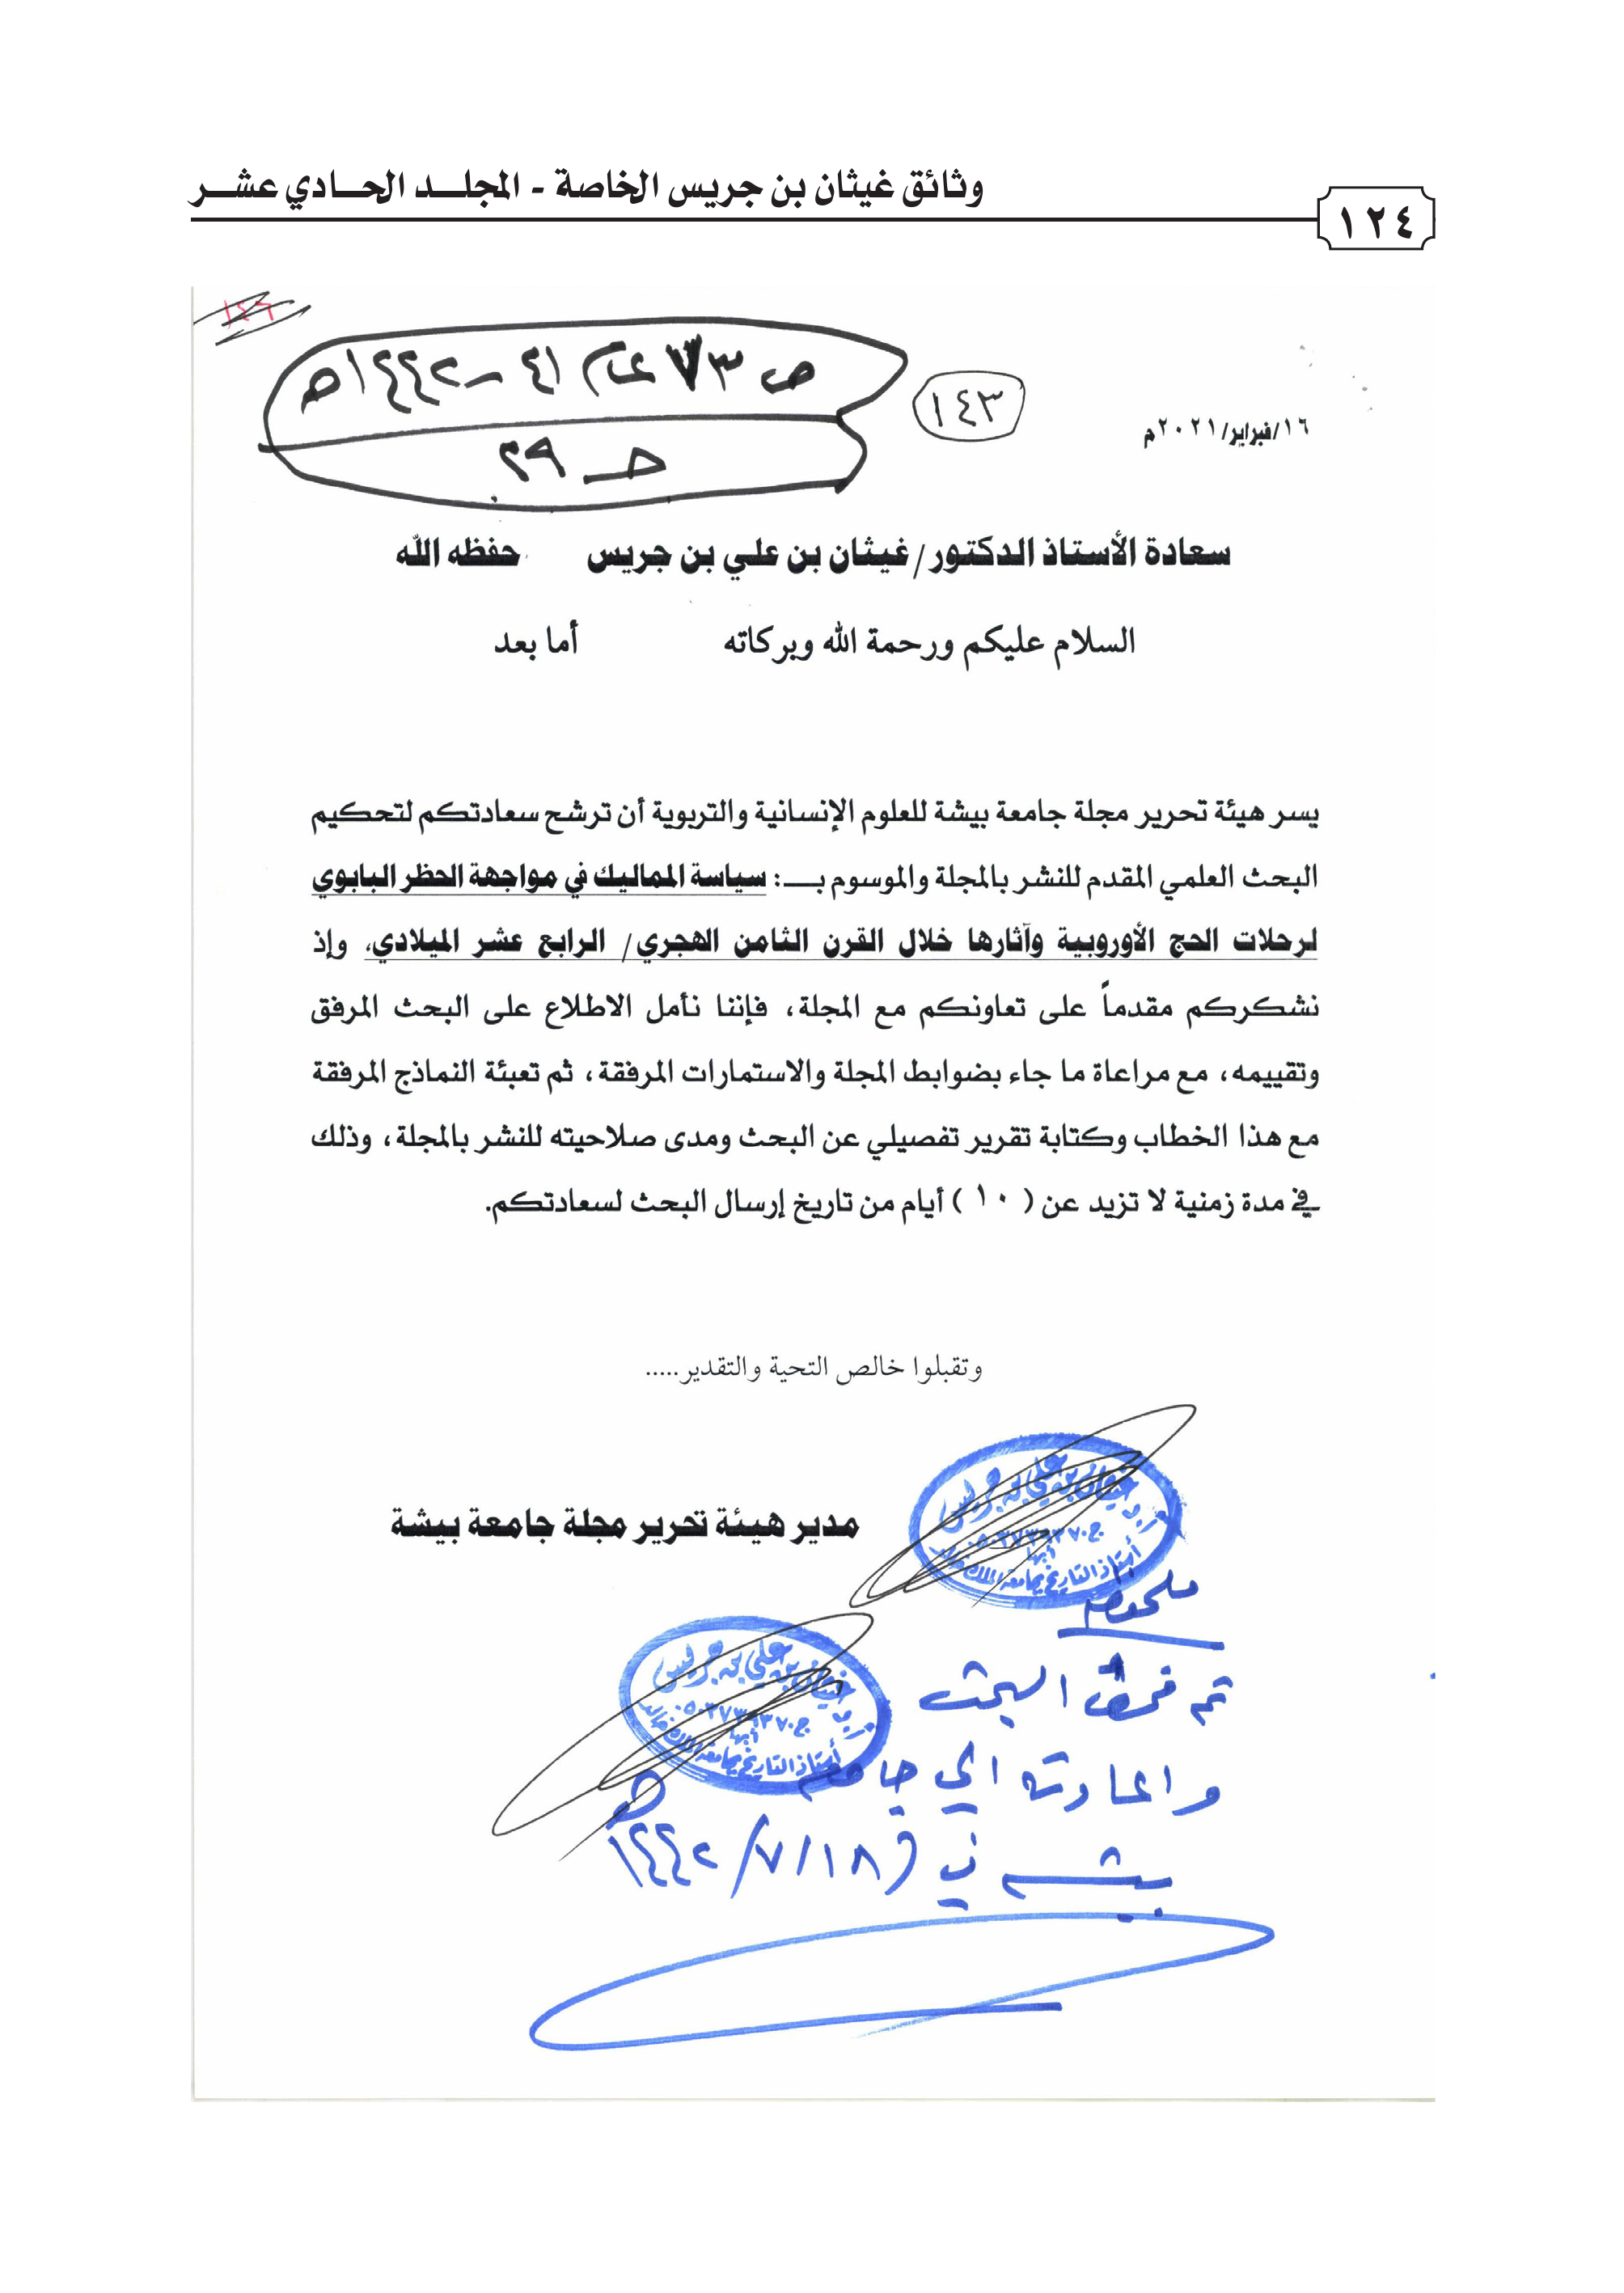 وثائق غيثان بن جريس الخاصة - المجلد الحادي عشر
١٢٤
ص ٧٣ عام ٤١ - ١٤٤٢هـ
١٤٣
١٦/فبراير/٢٠٢١م
حـ ٢٩
سعادة الأستاذ الدكتور/ غيثان بن علي بن جريس حفظه الله
السلام عليكم ورحمة الله وبركاته أما بعد
يسر هيئة تحرير مجلة جامعة بيشة للعلوم الإنسانية والتربوية أن ترشح سعادتكم لتحكيم
البحث العلمي المقدم للنشر بالمجلة والموسوم بـــ: سياسة المماليك في مواجهة الحظر البابوي
لرحلات الحج الأوروبية وآثارها خلال القرن الثامن الهجري/ الرابع عشر الميلادي، وإذ
نشكركم مقدماً على تعاونكم مع المجلة، فإننا نأمل الاطلاع على البحث المرفق
وتقييمه، مع مراعاة ما جاء بضوابط المجلة والاستمارات المرفقة، ثم تعبئة النماذج المرفقة
مع هذا الخطاب وكتابة تقرير تفصيلي عن البحث ومدى صلاحيته للنشر بالمجلة، وذلك
في مدة زمنية لا تزيد عن (١٠) أيام من تاريخ إرسال البحث لسعادتكم.
وتقبلوا خالص التحية والتقدير.....
أ.د. غيثان بن علي بن جريس
أبها
أستاذ التاريخ بجامعة الملك خالد
مدير هيئة تحرير مجلة جامعة بيشة
أ.د. غيثان بن علي بن جريس
أبها
أستاذ التاريخ بجامعة الملك خالد
تم فحص البحث
واعادته الى جامعة
بيشة في (١٨/٧/١٤٤٢هـ